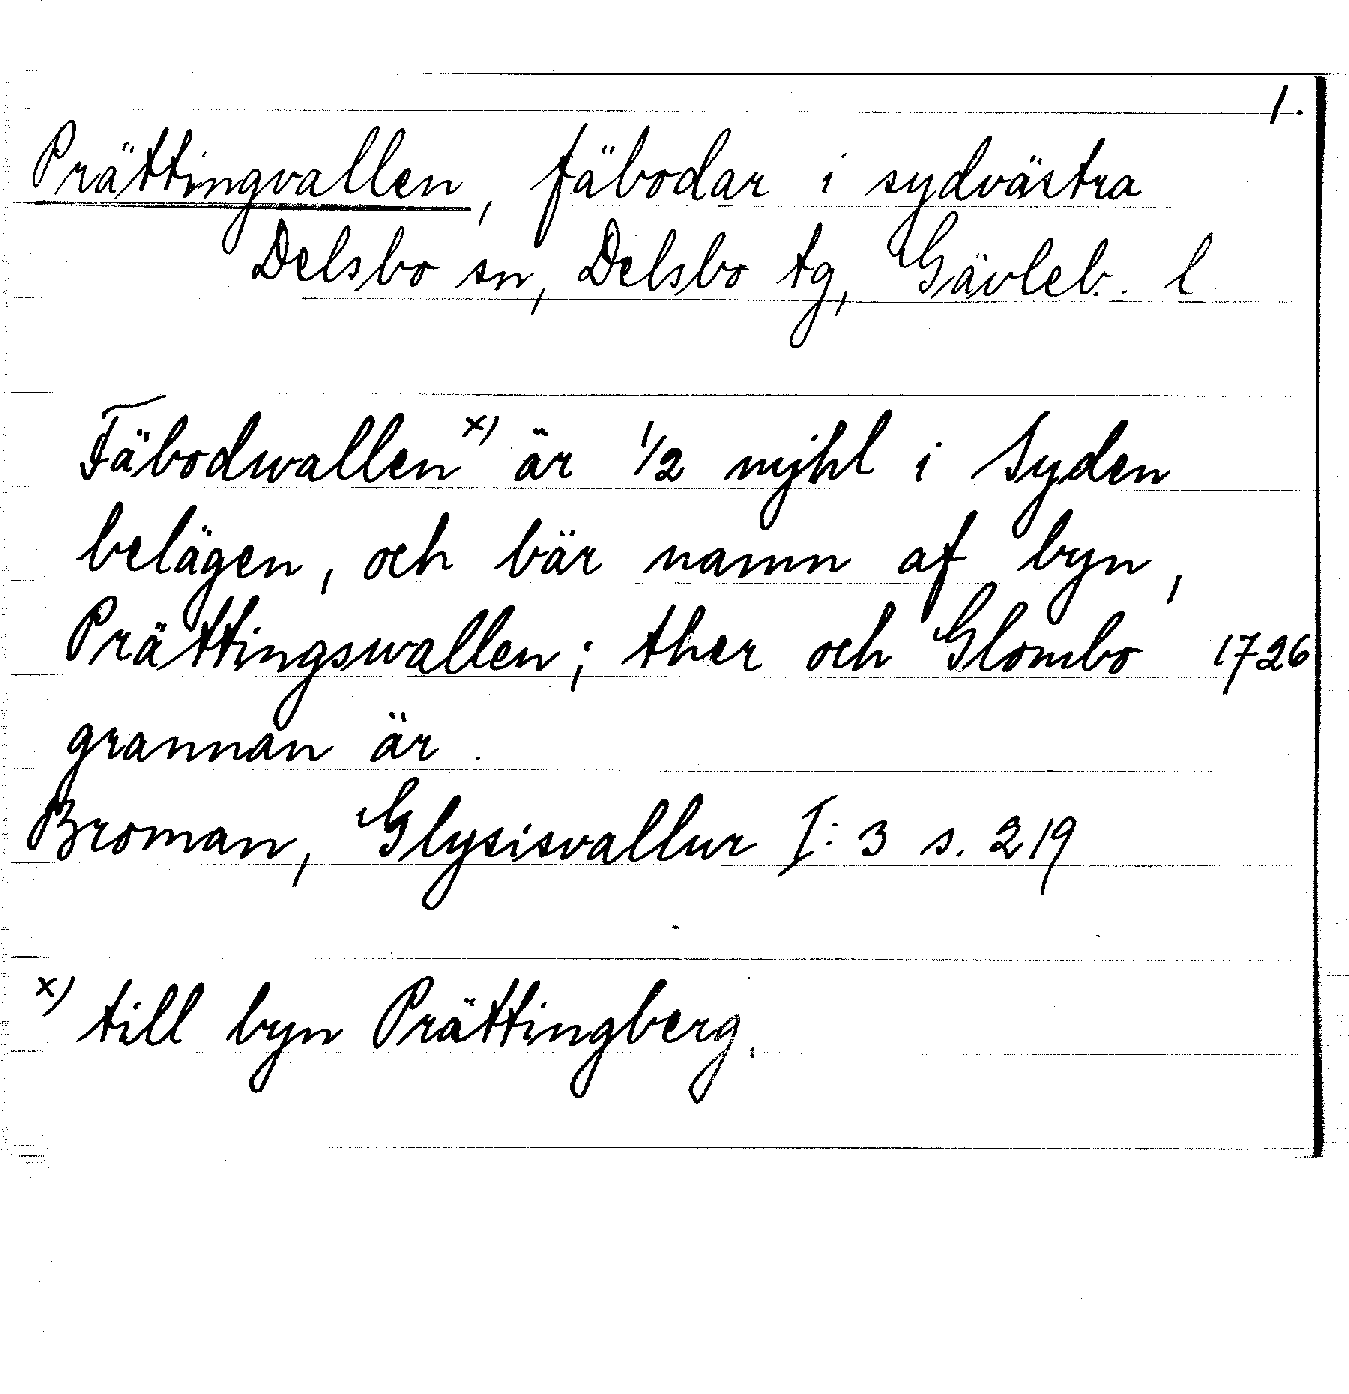 1.
Prättingvallen, fäbodar i sydvästra
Delsbo sn, Delsbo tg, Gävleb. l
Fäbodwallen x) är 1/2 mijhl i Syden
belägen, och bär namn af byn,
Prättingswallen; ther och Glombo 1726
grannan är.
Broman, Glysisvallur I: 3 s. 219
x) till byn Prättingberg.